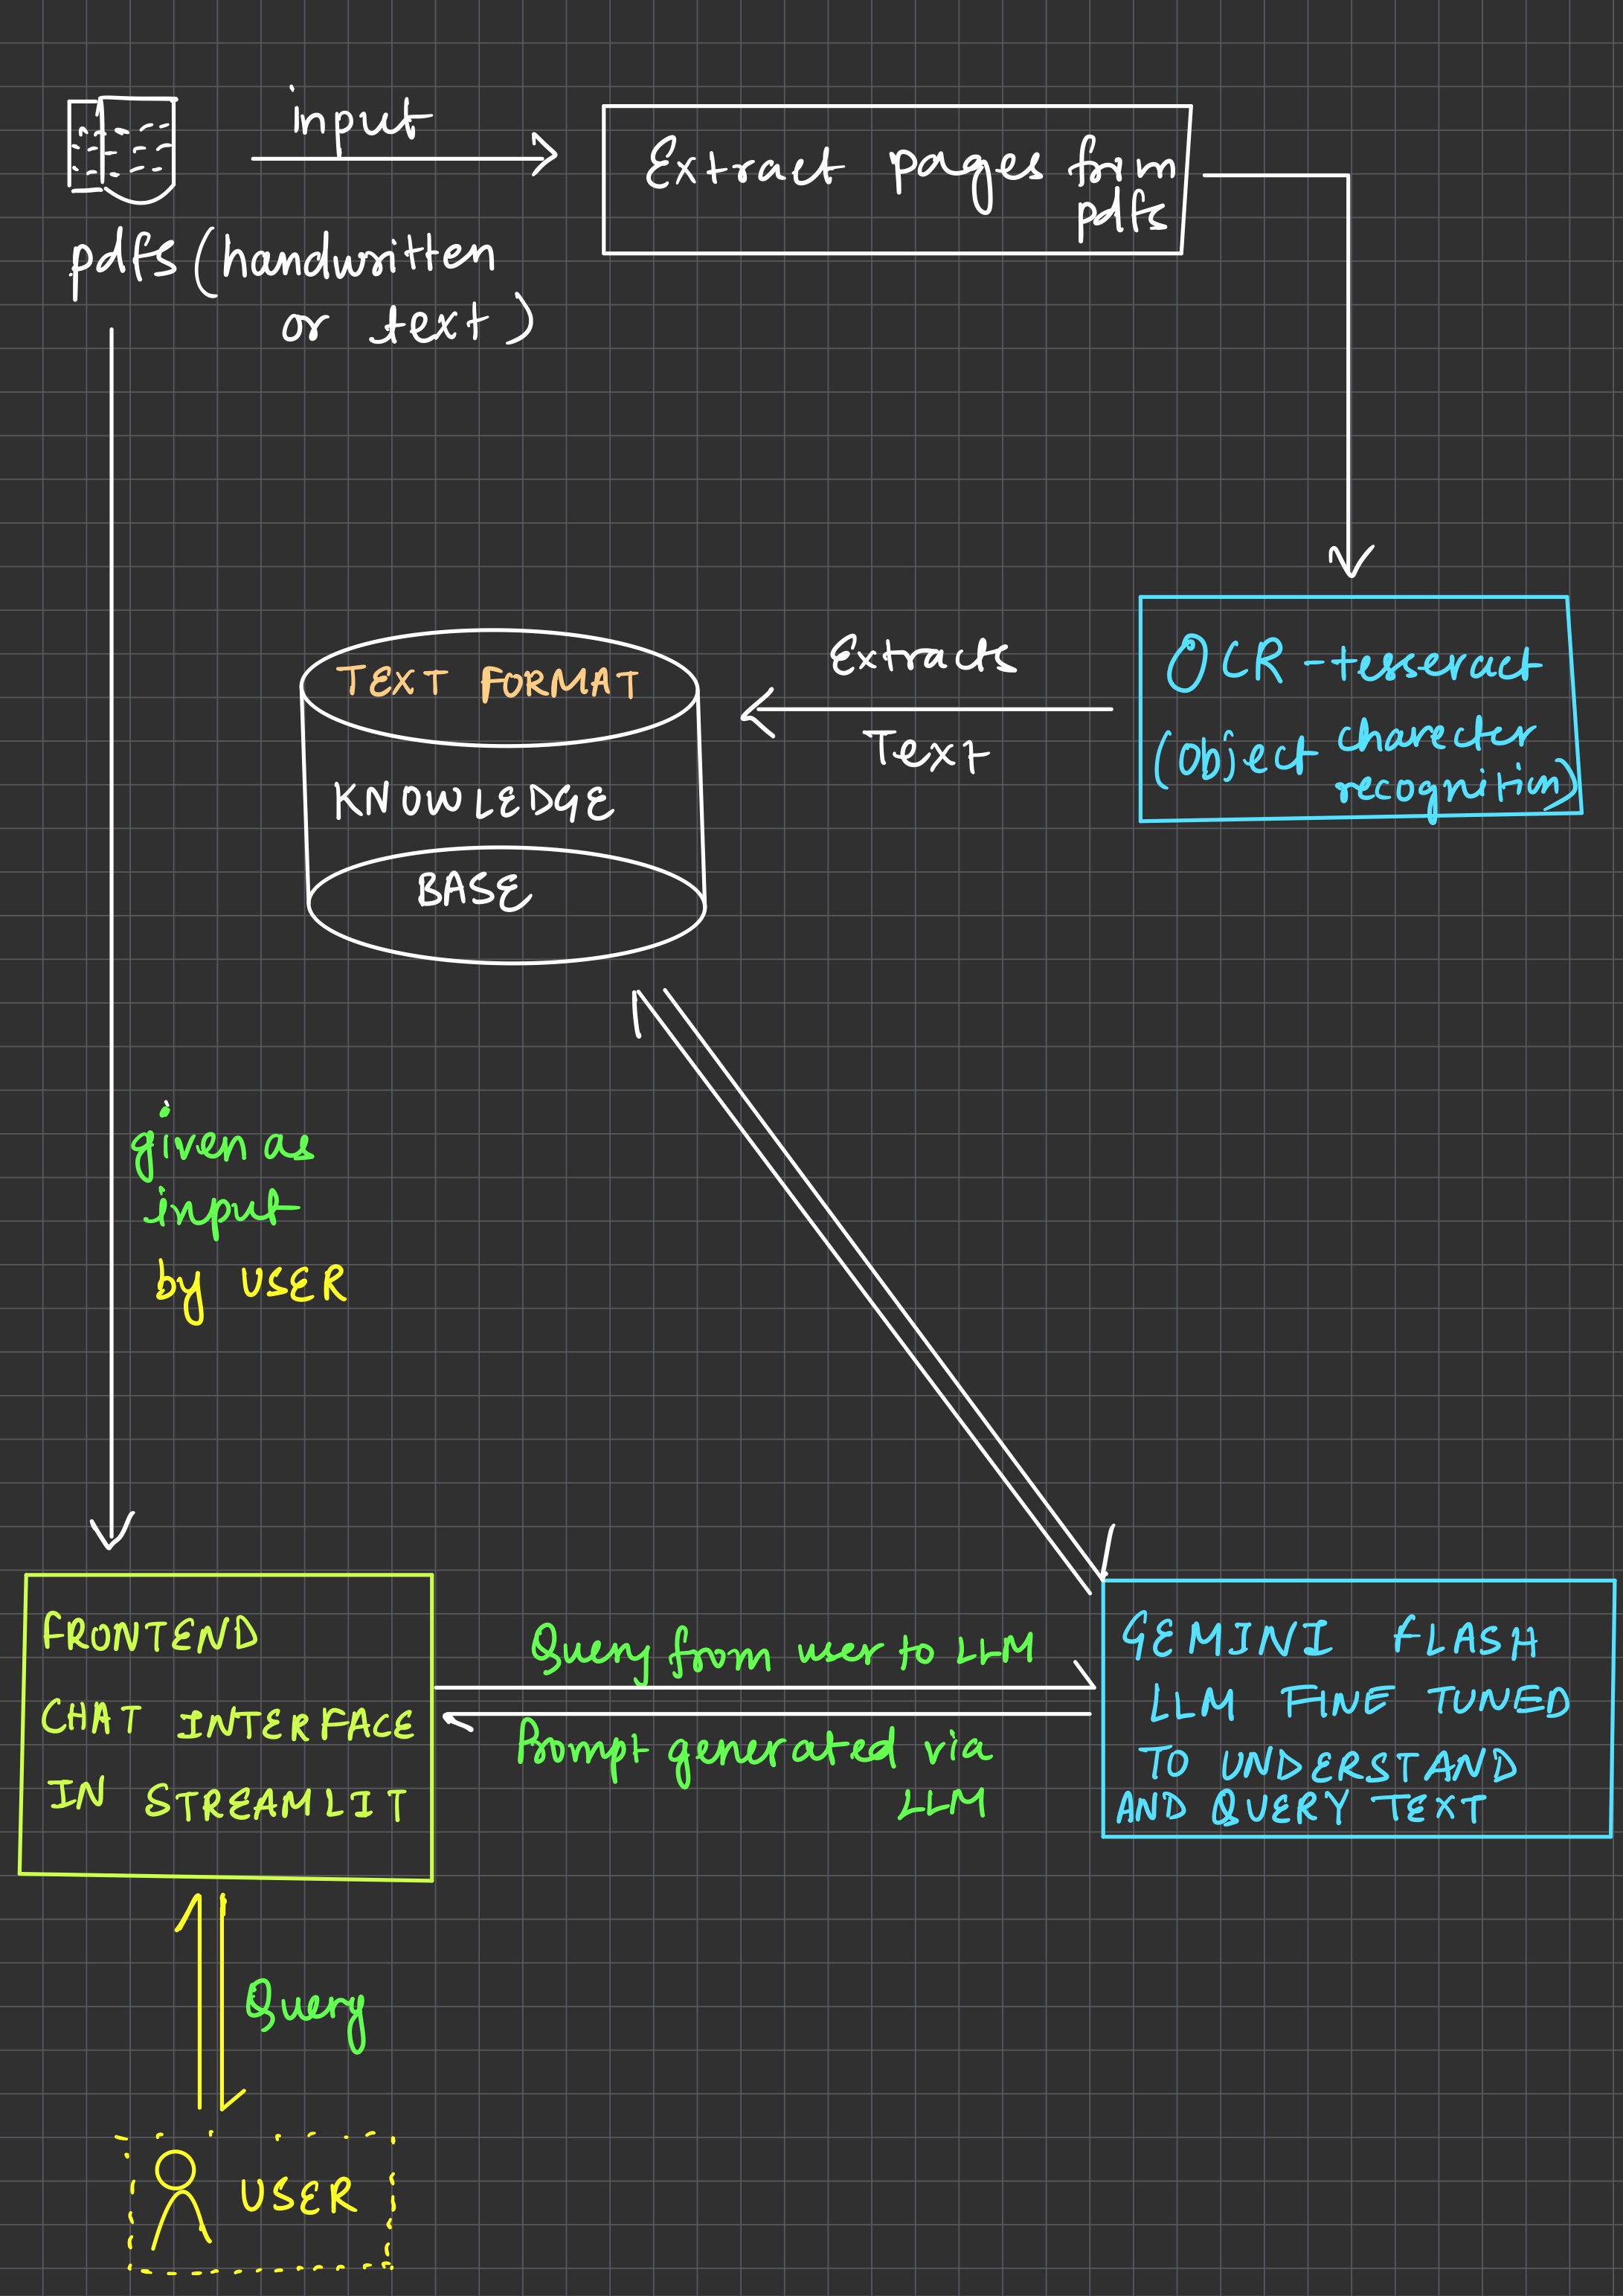 input
Extract pages from
pdfs
pdfs (handwritten
or text)
OCR - tesseract
(object charecter
recognition)
Extracts
Text
TEXT FORMAT
KNOWLEDGE
BASE
given as
input
by USER
FRONTEND
CHAT INTERFACE
IN STREAMLIT
Query from user to LLM
Prompt generated via
LLM
GEMINI FLASH
LLM FINE TUNED
TO UNDERSTAND
AND QUERY TEXT
Query
USER